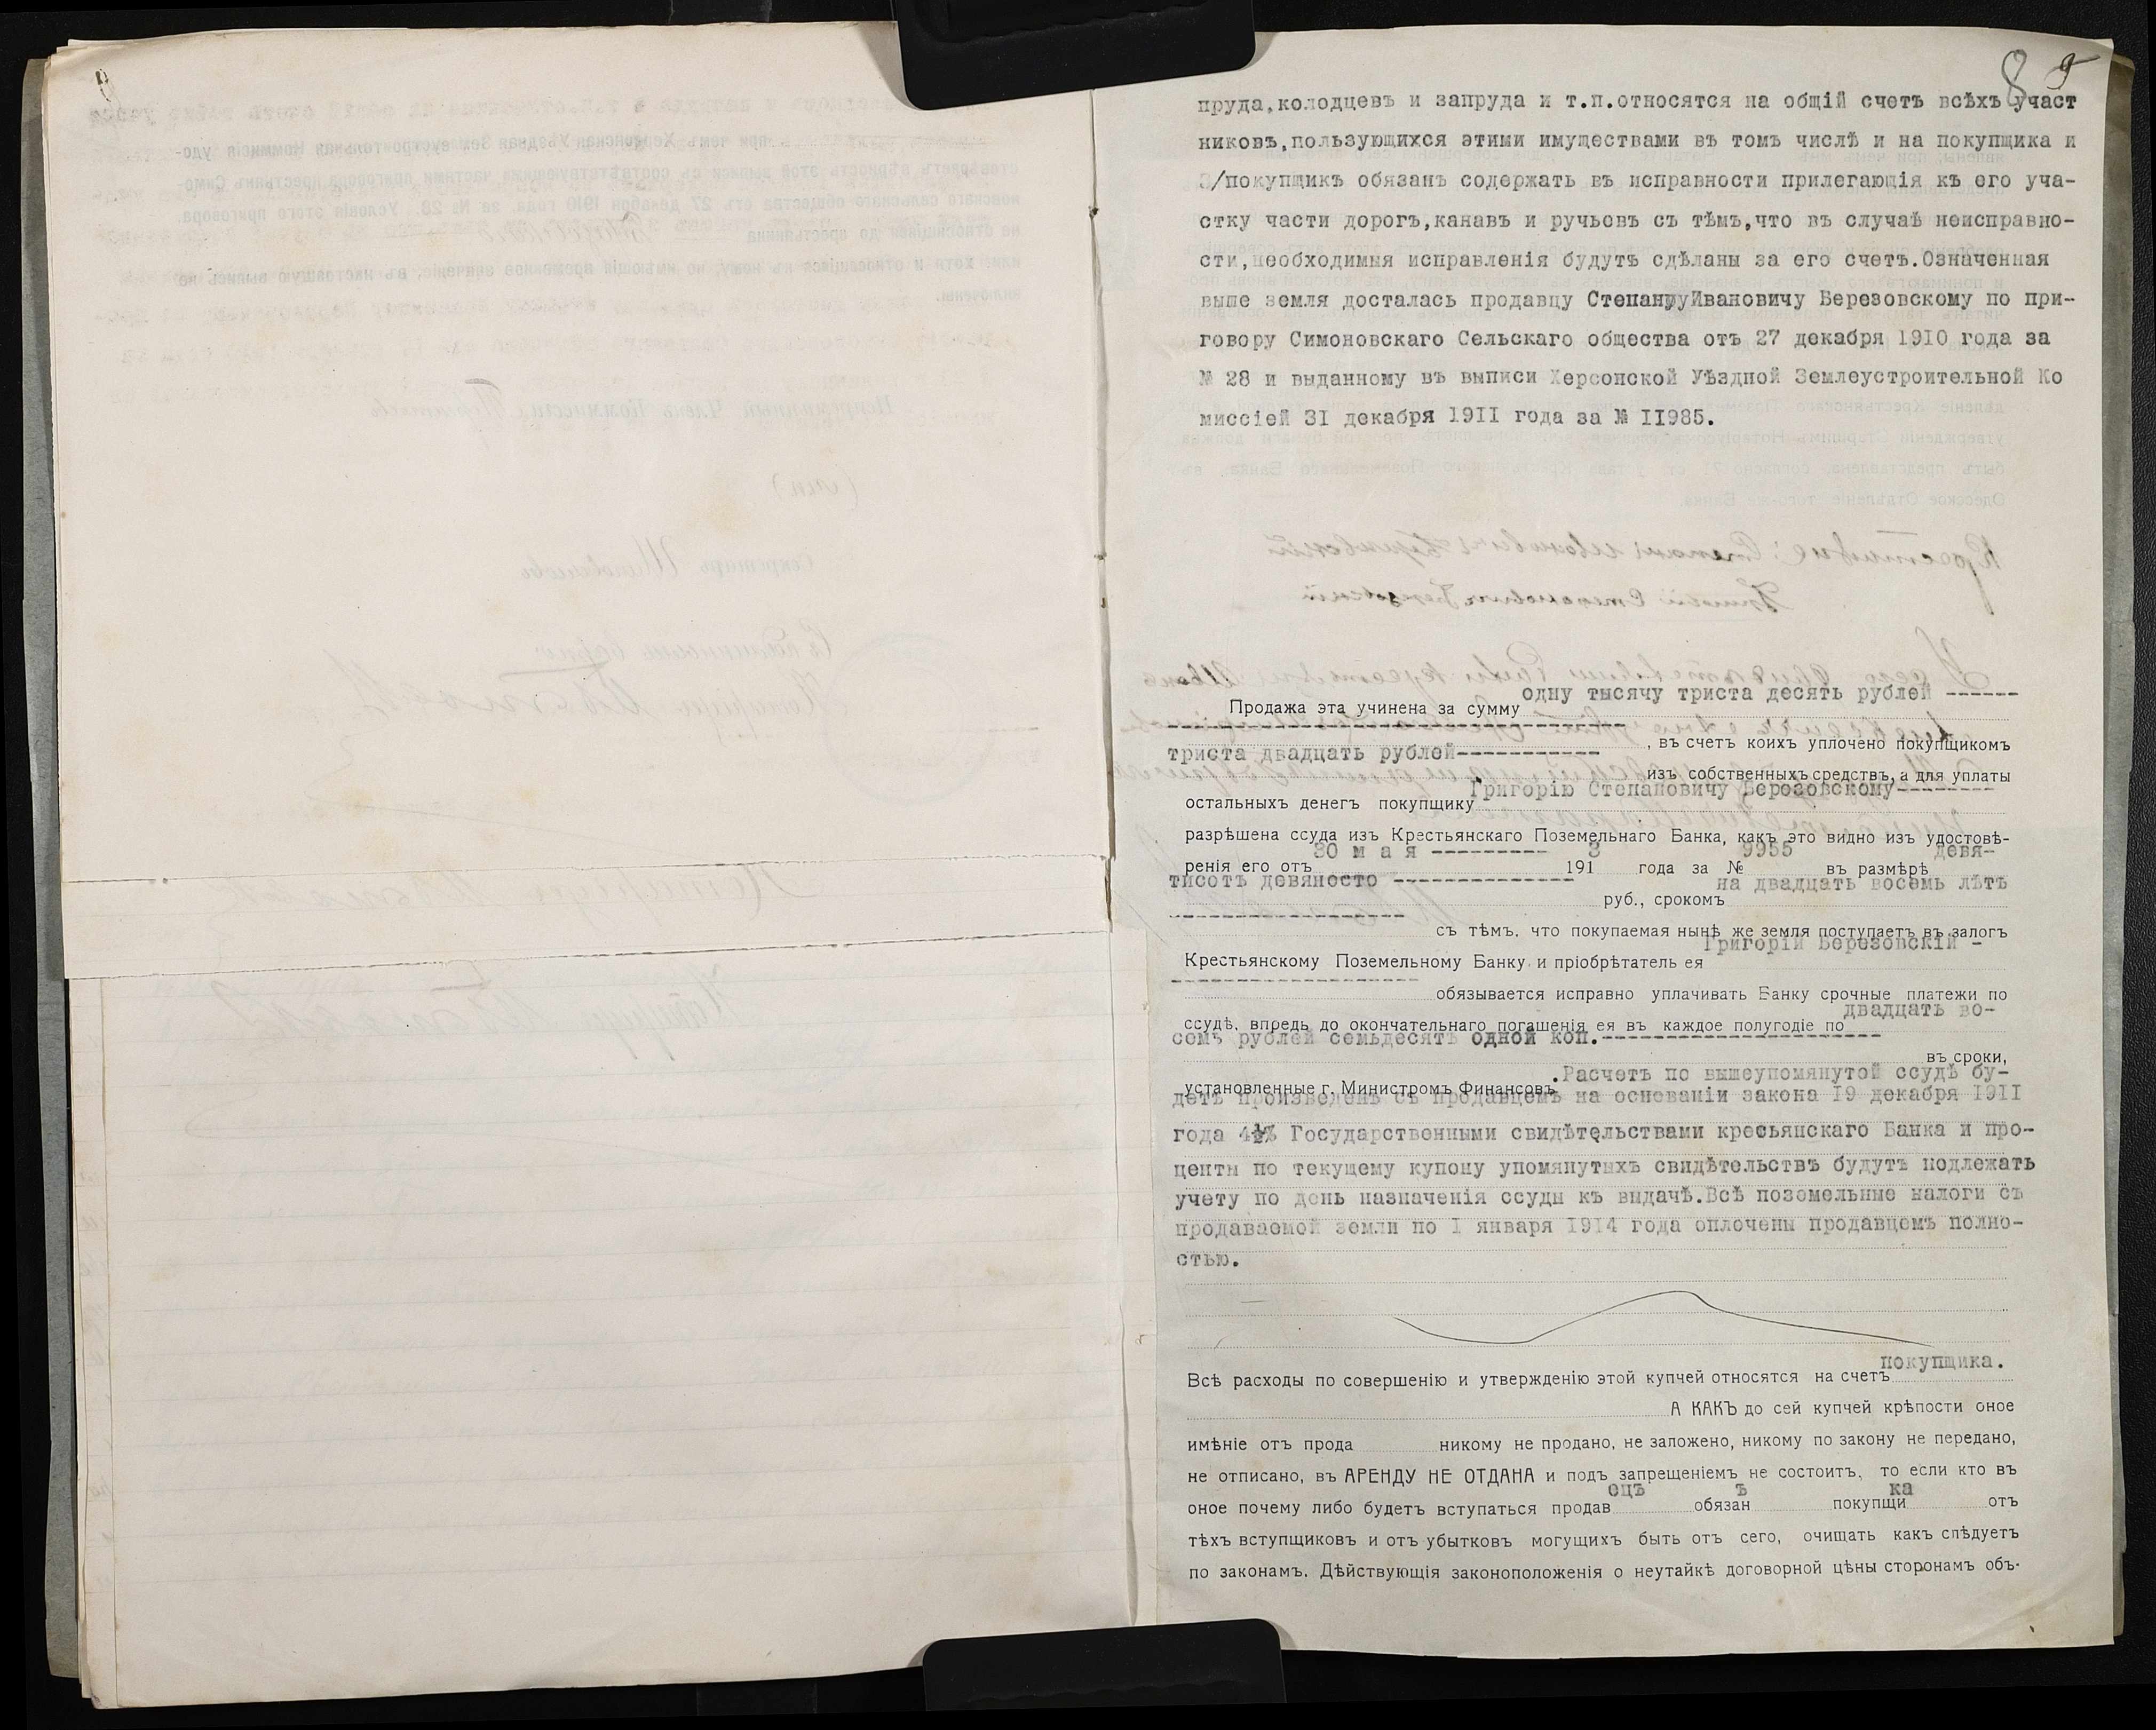 8 9
пруда,колодцевъ и запруда и т.п.относятся на общій счетъ всѣхъ участ
никовъ,пользующихся этими имуществами въ томъ числѣ и на покупщика и
3/покупщикъ обязанъ содержать въ исправности прилегающія къ его уча-
стку части дорогъ,канавъ и ручьевъ съ тѣмъ,что въ случаѣ неисправно-
сти,необходимыя исправленія будутъ сдѣланы за его счетъ.Означенная
выше земля досталась продавцу Степану Ивановичу Березовскому по при-
говору Симоновскаго Сельскаго общества отъ 27 декабря 1910 года за
№ 28 и выданному въ выписи Херсонской Уѣздной Землеустроительной Ко
миссіей 31 декабря 19II года за № II985.
Продажа эта учинена за сумму одну тысячу триста десять рублей ------
триста двадцать рублей-----------, въ счетъ коихъ уплочено покупщикомъ
изъ собственныхъ средствъ, а для уплаты
остальныхъ денегъ покупщику Григорію Степановичу Березовскому--------
разрѣшена ссуда изъ Крестьянскаго Поземельнаго Банка, какъ это видно изъ удостовѣ-
ренія его отъ 30 м а я --------- 1913 года за № 9955 въ размѣрѣ девя-
тисотъ девяносто -------------- руб., срокомъ на двадцать восемь лѣтъ
------------------ съ тѣмъ, что покупаемая нынѣ же земля поступаетъ въ залогъ
Крестьянскому Поземельному Банку и пріобрѣтатель ея Григорій Березовскій -
------------------- обязывается исправно уплачивать Банку срочные платежи по
ссудѣ, впредь до окончательнаго погашенія ея въ каждое полугодіе по двадцать во-
семь рублей семьдесятъ одной коп.----------------------
въ сроки,
установленные г. Министромъ Финансовъ.Расчетъ по вышеупомянутой ссудѣ бу-
детъ произведенъ съ продавцемъ на основаніи закона I9 декабря I9II
года 4½% Государственными свидѣтельствами кресьянскаго Банка и про-
центы по текущему купону упомянутыхъ свидѣтельствъ будутъ подлежать
учету по день назначенія ссуды къ выдачѣ.Всѣ поземельные налоги съ
продаваемой земли по I января I9I4 года оплочены продавцемъ полно-
стью.
Всѣ расходы по совершенію и утвержденію этой купчей относятся на счетъ покупщика.
А КАКЪ до сей купчей крѣпости оное
имѣніе отъ прода никому не продано, не заложено, никому по закону не передано,
не отписано, въ АРЕНДУ НЕ ОТДАНА и подъ запрещеніемъ не состоитъ, то если кто въ
оное почему либо будетъ вступаться продавецъ обязанъ покупщика отъ
тѣхъ вступщиковъ и отъ убытковъ могущихъ быть отъ сего, очищать какъ слѣдуетъ
по законамъ. Дѣйствующія законоположенія о неутайкѣ договорной цѣны сторонамъ объ-